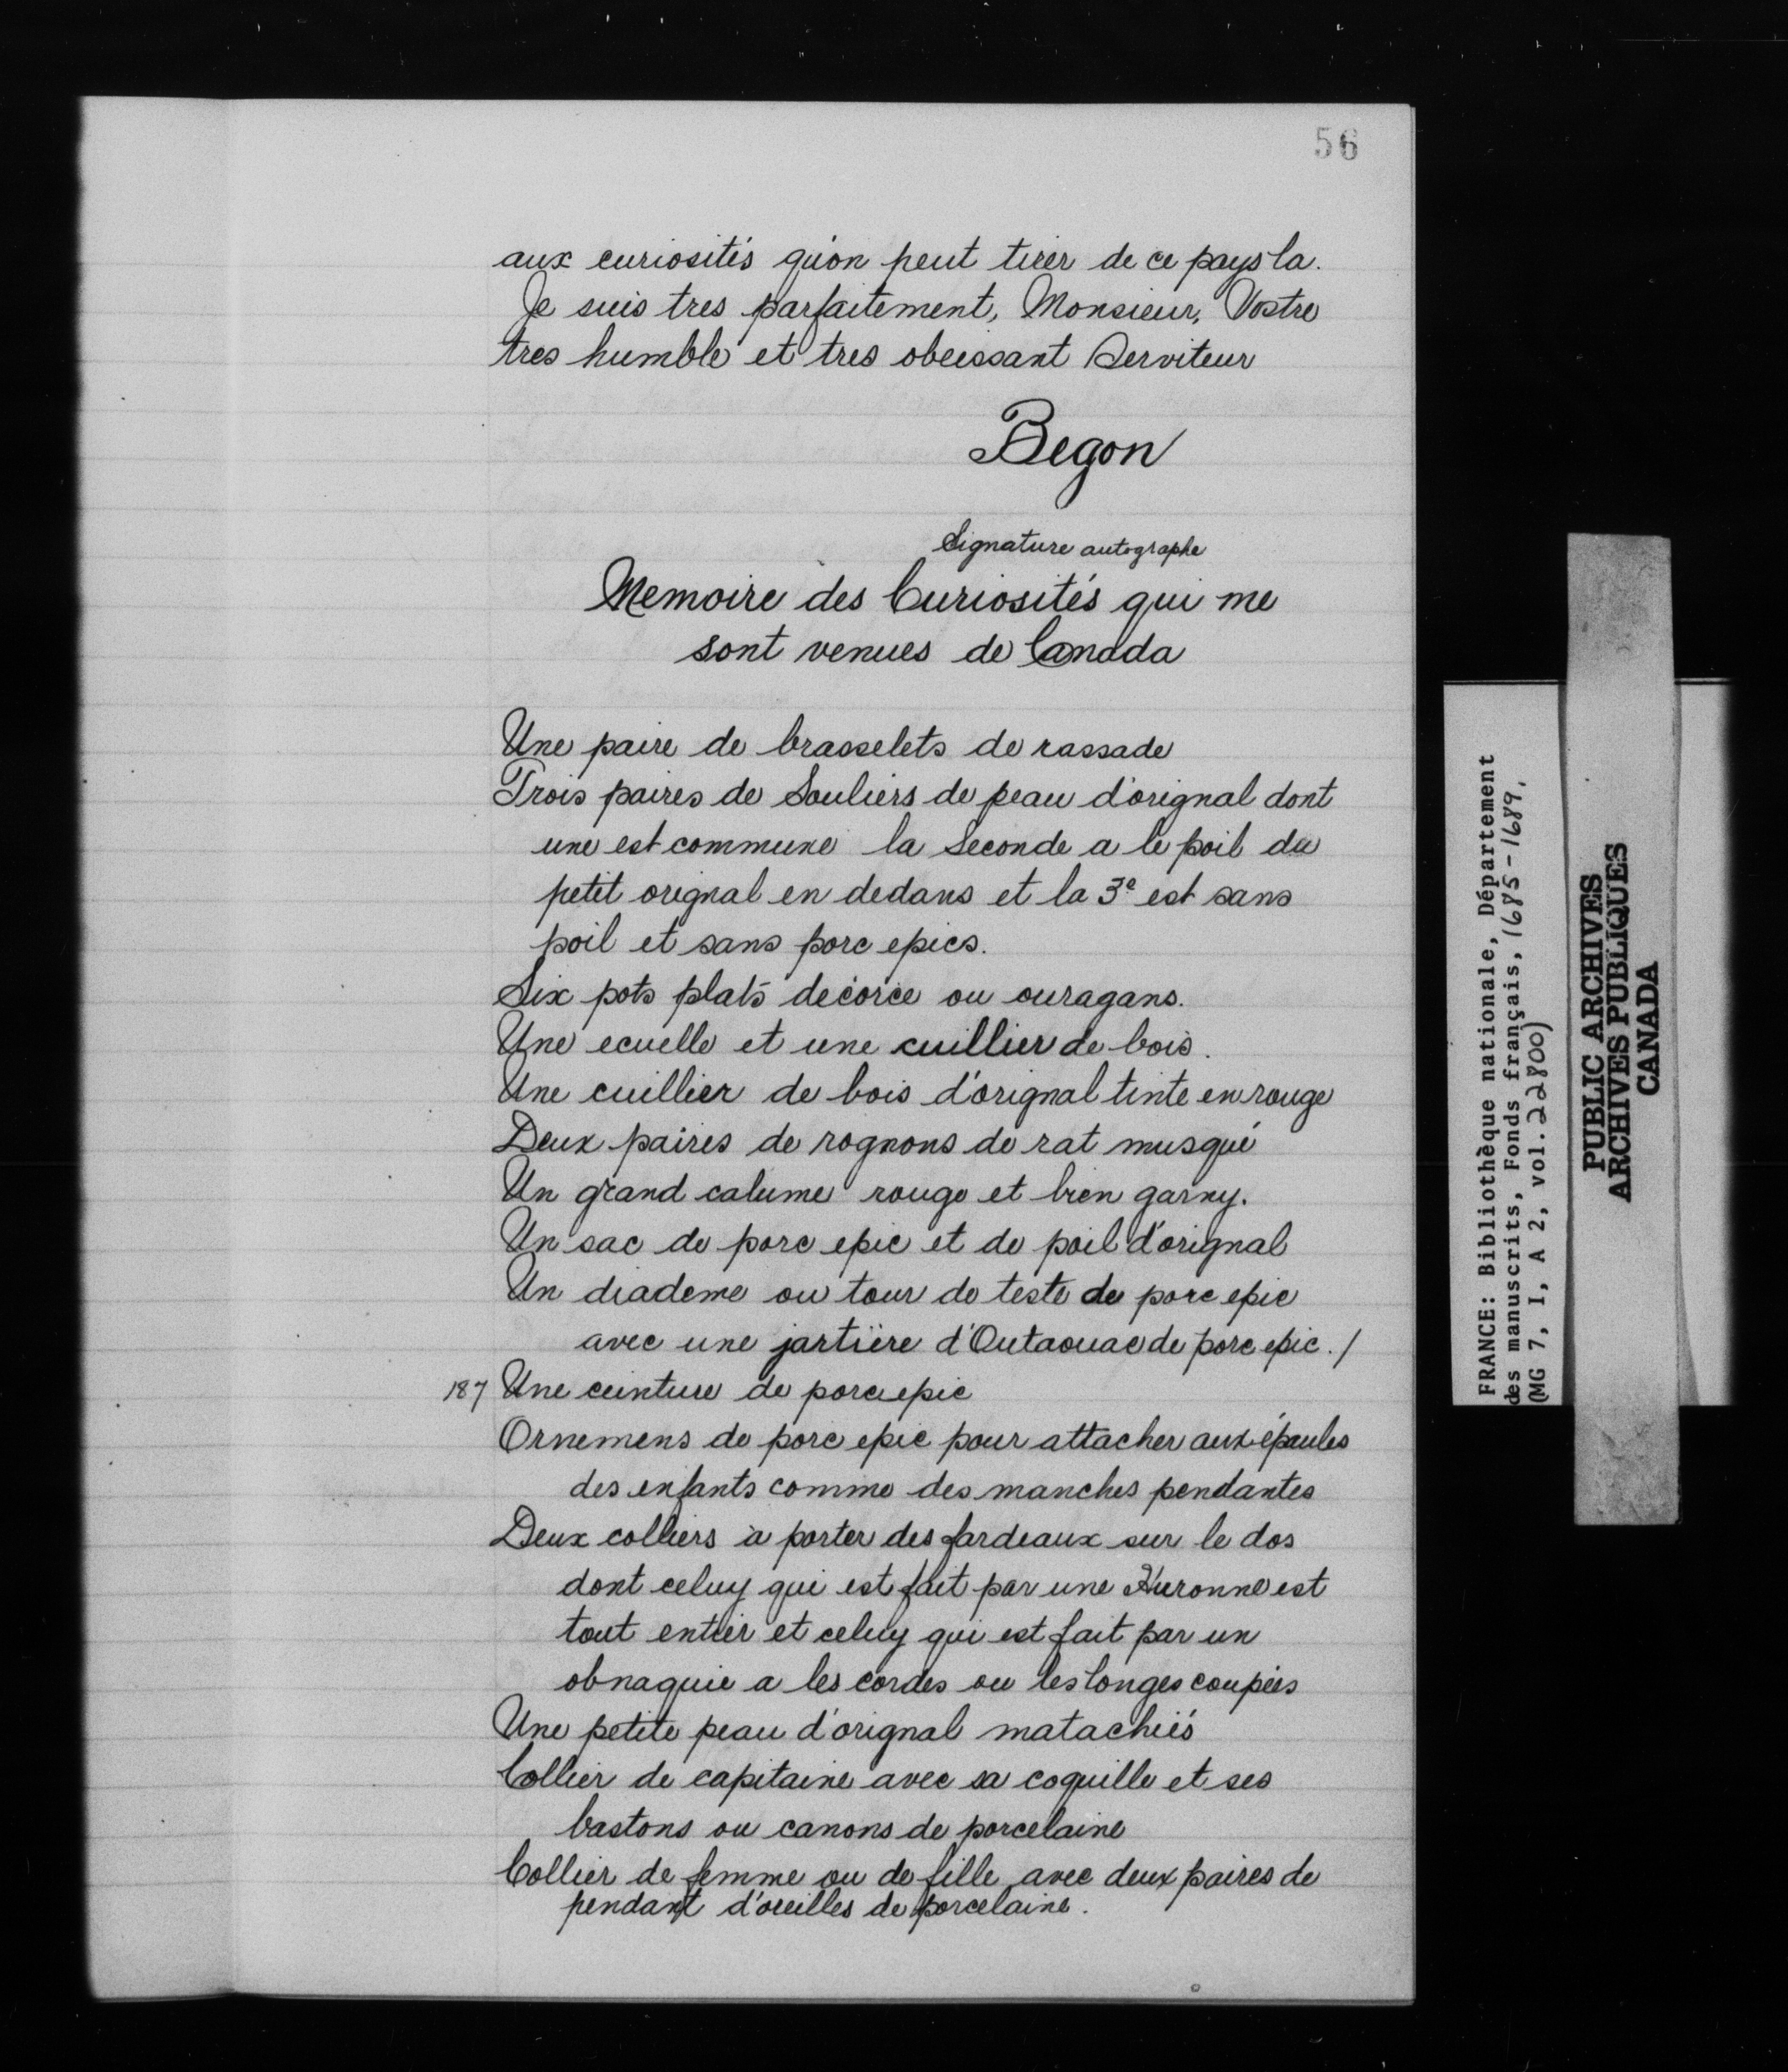 56
aux curiosités qu'on peut tirer de ce pays la.
Je suis tres parfaitement, Monsieur, Vostre
tres humble et tres obeissant Serviteur
Begon
Signature autographe
Memoire des Curiosités qui me
sont venues de Canada
Une paire de brasselets de rassade
Trois paires de Souliers de peau d'orignal dont
une est commune la Seconde a le poil du
petit orignal en dedans et la 3e est sans
poil et sans porc epics.
Six pots plats d'ecorce ou ouragans.
Une ecuelle et une cuillier de bois.
Une cuillier de bois d'orignal tinte en rouge
Deux paires de rognons de rat musqué
Un grand calume rouge et bien garny.
Un sac de porc epic et de poil d'orignal
Un diademe ou tour de teste de porc epic
avec une jartière d'Outaouac de porc epic. /
187 Une ceinture de porc epic
Ornemens de porc epic pour attacher aux épaules
des enfants comme des manches pendantes
Deux colliers à porter des fardeaux sur le dos
dont celuy qui est fait par une Huronne est
tout entier et celuy qui est fait par un
obnaquie a les cordes ou les longes coupées
Une petite peau d'orignal matachiés
Collier de capitaine avec sa coquille et ses
bastons ou canons de porcelaine
Collier de femme ou de fille avec deux paires de
pendant d'oreilles de porcelaine.
FRANCE: Bibliothèque nationale, Département
des manuscrits, Fonds français, 1685-1689,
(MG 7, I, A 2, vol. 22800)
PUBLIC ARCHIVES
ARCHIVES PUBLIQUES
CANADA